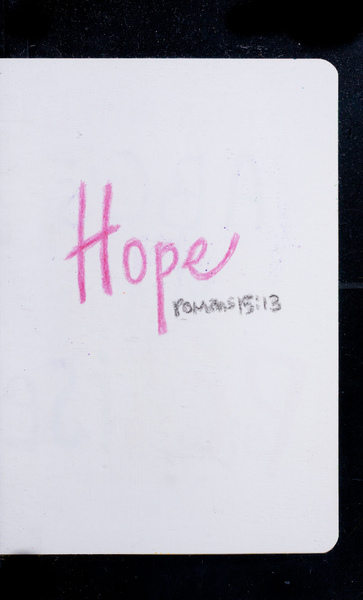 Hope
romans 15:13